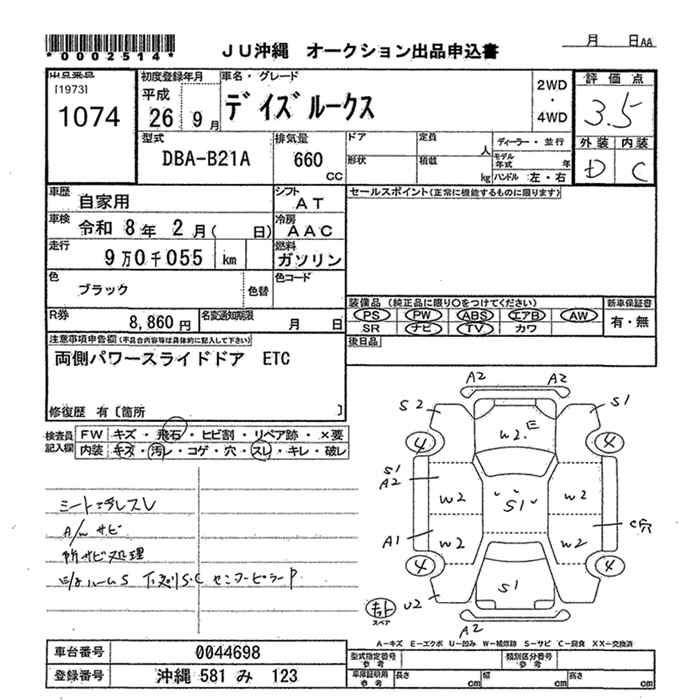 *0002514*
JU沖縄 オークション出品申込書
月 日AA
出品番号
[1973]
1074
初度登録年月
平成
26 9月
車名・グレード
デイズルークス
2WD
・
4WD
評価点
3.5
外装 内装
D C
型式
DBA-B21A
排気量
660
CC
ドア
定員
人
形状
積載
kg
ディーラー・並行
モデル年式 年
ハンドル 左・右
車歴
自家用
シフト
AT
車検
令和 8年 2月( 日)
冷房
AAC
走行
9万0千055 km
燃料
ガソリン
色
ブラック
色替
色コード
R券
8,860円
名変通知期限
月 日
セールスポイント(正常に機能するものに限ります)
装備品 (純正品に限り○をつけてください)
PS PW ABS エアB AW
SR ナビ TV カワ
新車保証書
有・無
後日品
注意事項申告欄(不具合内容等は具体的に記入して下さい)
両側パワースライドドア ETC
修復歴 有〔箇所 〕
検査員記入欄
FW キズ・飛石・ヒビ割・リペア跡・×要
内装 キズ・汚レ・コゲ・穴・スレ・キレ・破レ
シート汚レスレ
A/wサビ
所サビ処理
A2 A2
S2 S1
W2 E
4 4
S1
A2
W2 S1 W2
A1 W2 W2 C穴
4 4
S1
U2
A2
スペア
A-キズ E-エクボ U-凹み W-補修跡 S-サビ C-腐食 XX-交換済
車台番号
0044698
登録番号
沖縄 581 み 123
型式指定番号
参考
類別区分番号
参考
車庫証明用
参考
長さ cm
幅 cm
高さ cm